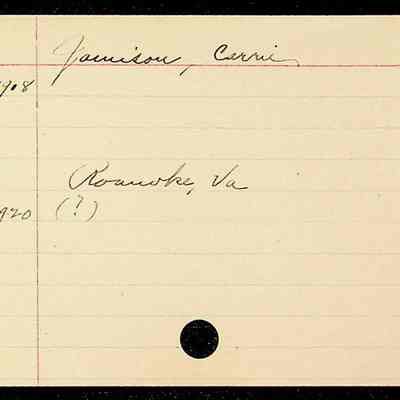 Jamison, Carrie
1908
Roanoke, Va
1920 (?)